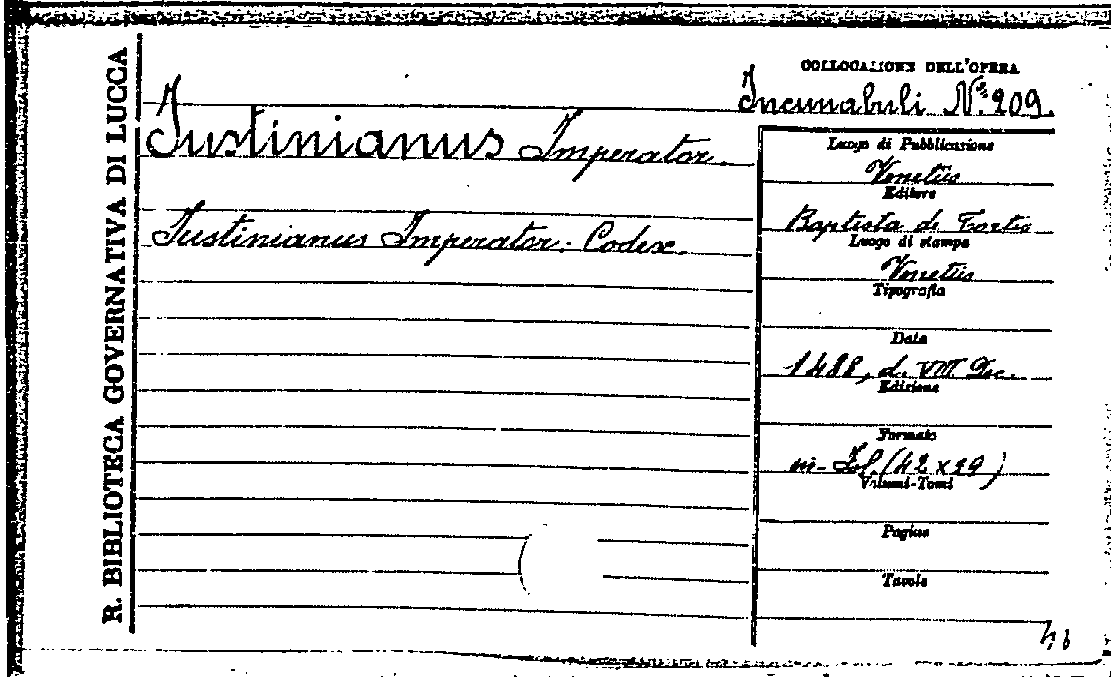 R. BIBLIOTECA GOVERNATIVA DI LUCCA
COLLOCAZIONE DELL'OPERA
Incunabuli N.º 209.
Iustinianus Imperator.
Iustinianus Imperator. Codex.
Luogo di Pubblicazione
Venetiis
Editore
Baptista de Tortis
Luogo di stampa
Venetiis
Tipografia
Data
1488, d. VIII Dec.
Edizione
Formato
in-Fol. (42 x 29)
Volumi-Tomi
Pagine
Tavole